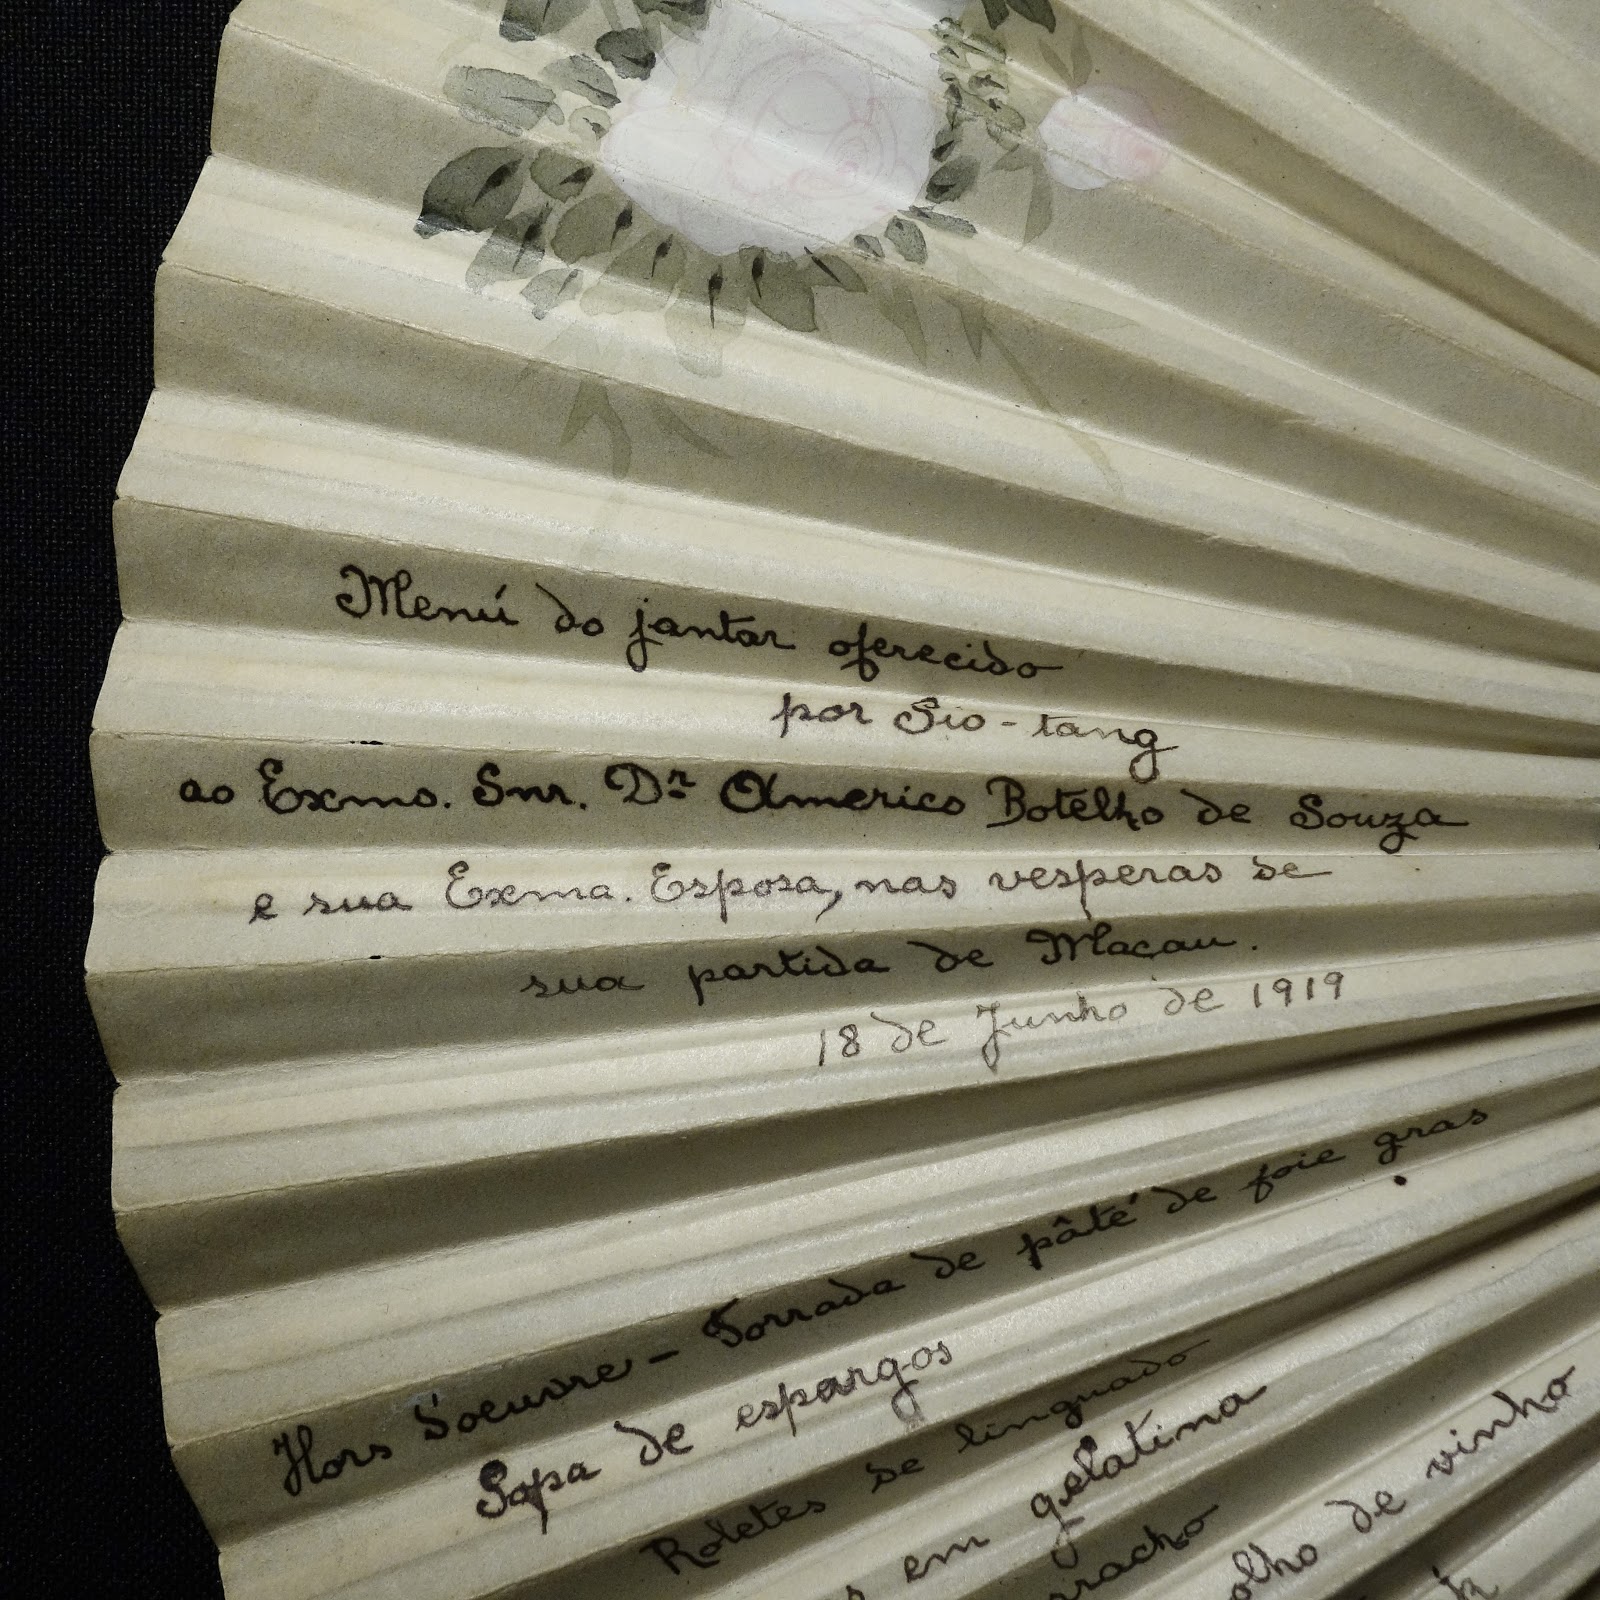 Menú do jantar oferecido
por Sio-tang
ao Exmo. Snr. Dr Americo Botelho de Souza
e sua Exma. Esposa, nas vesperas de
sua partida de Macau.
18 de Junho de 1919
Hors d'oeuvre - Torrada de pâté de foie gras
Sopa de espargos
Roletes de linguado
em gelatina
de vinho